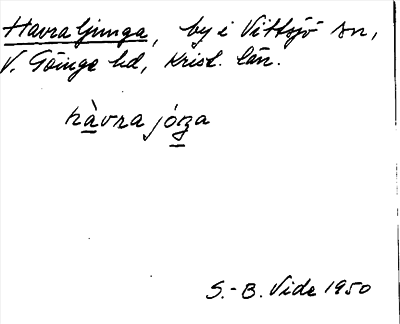 Havraljunga, by i Vittsjö sn,
V. Göinge hd, Krist. län.
hàvra jóŋa
S.-B. Vide 1950